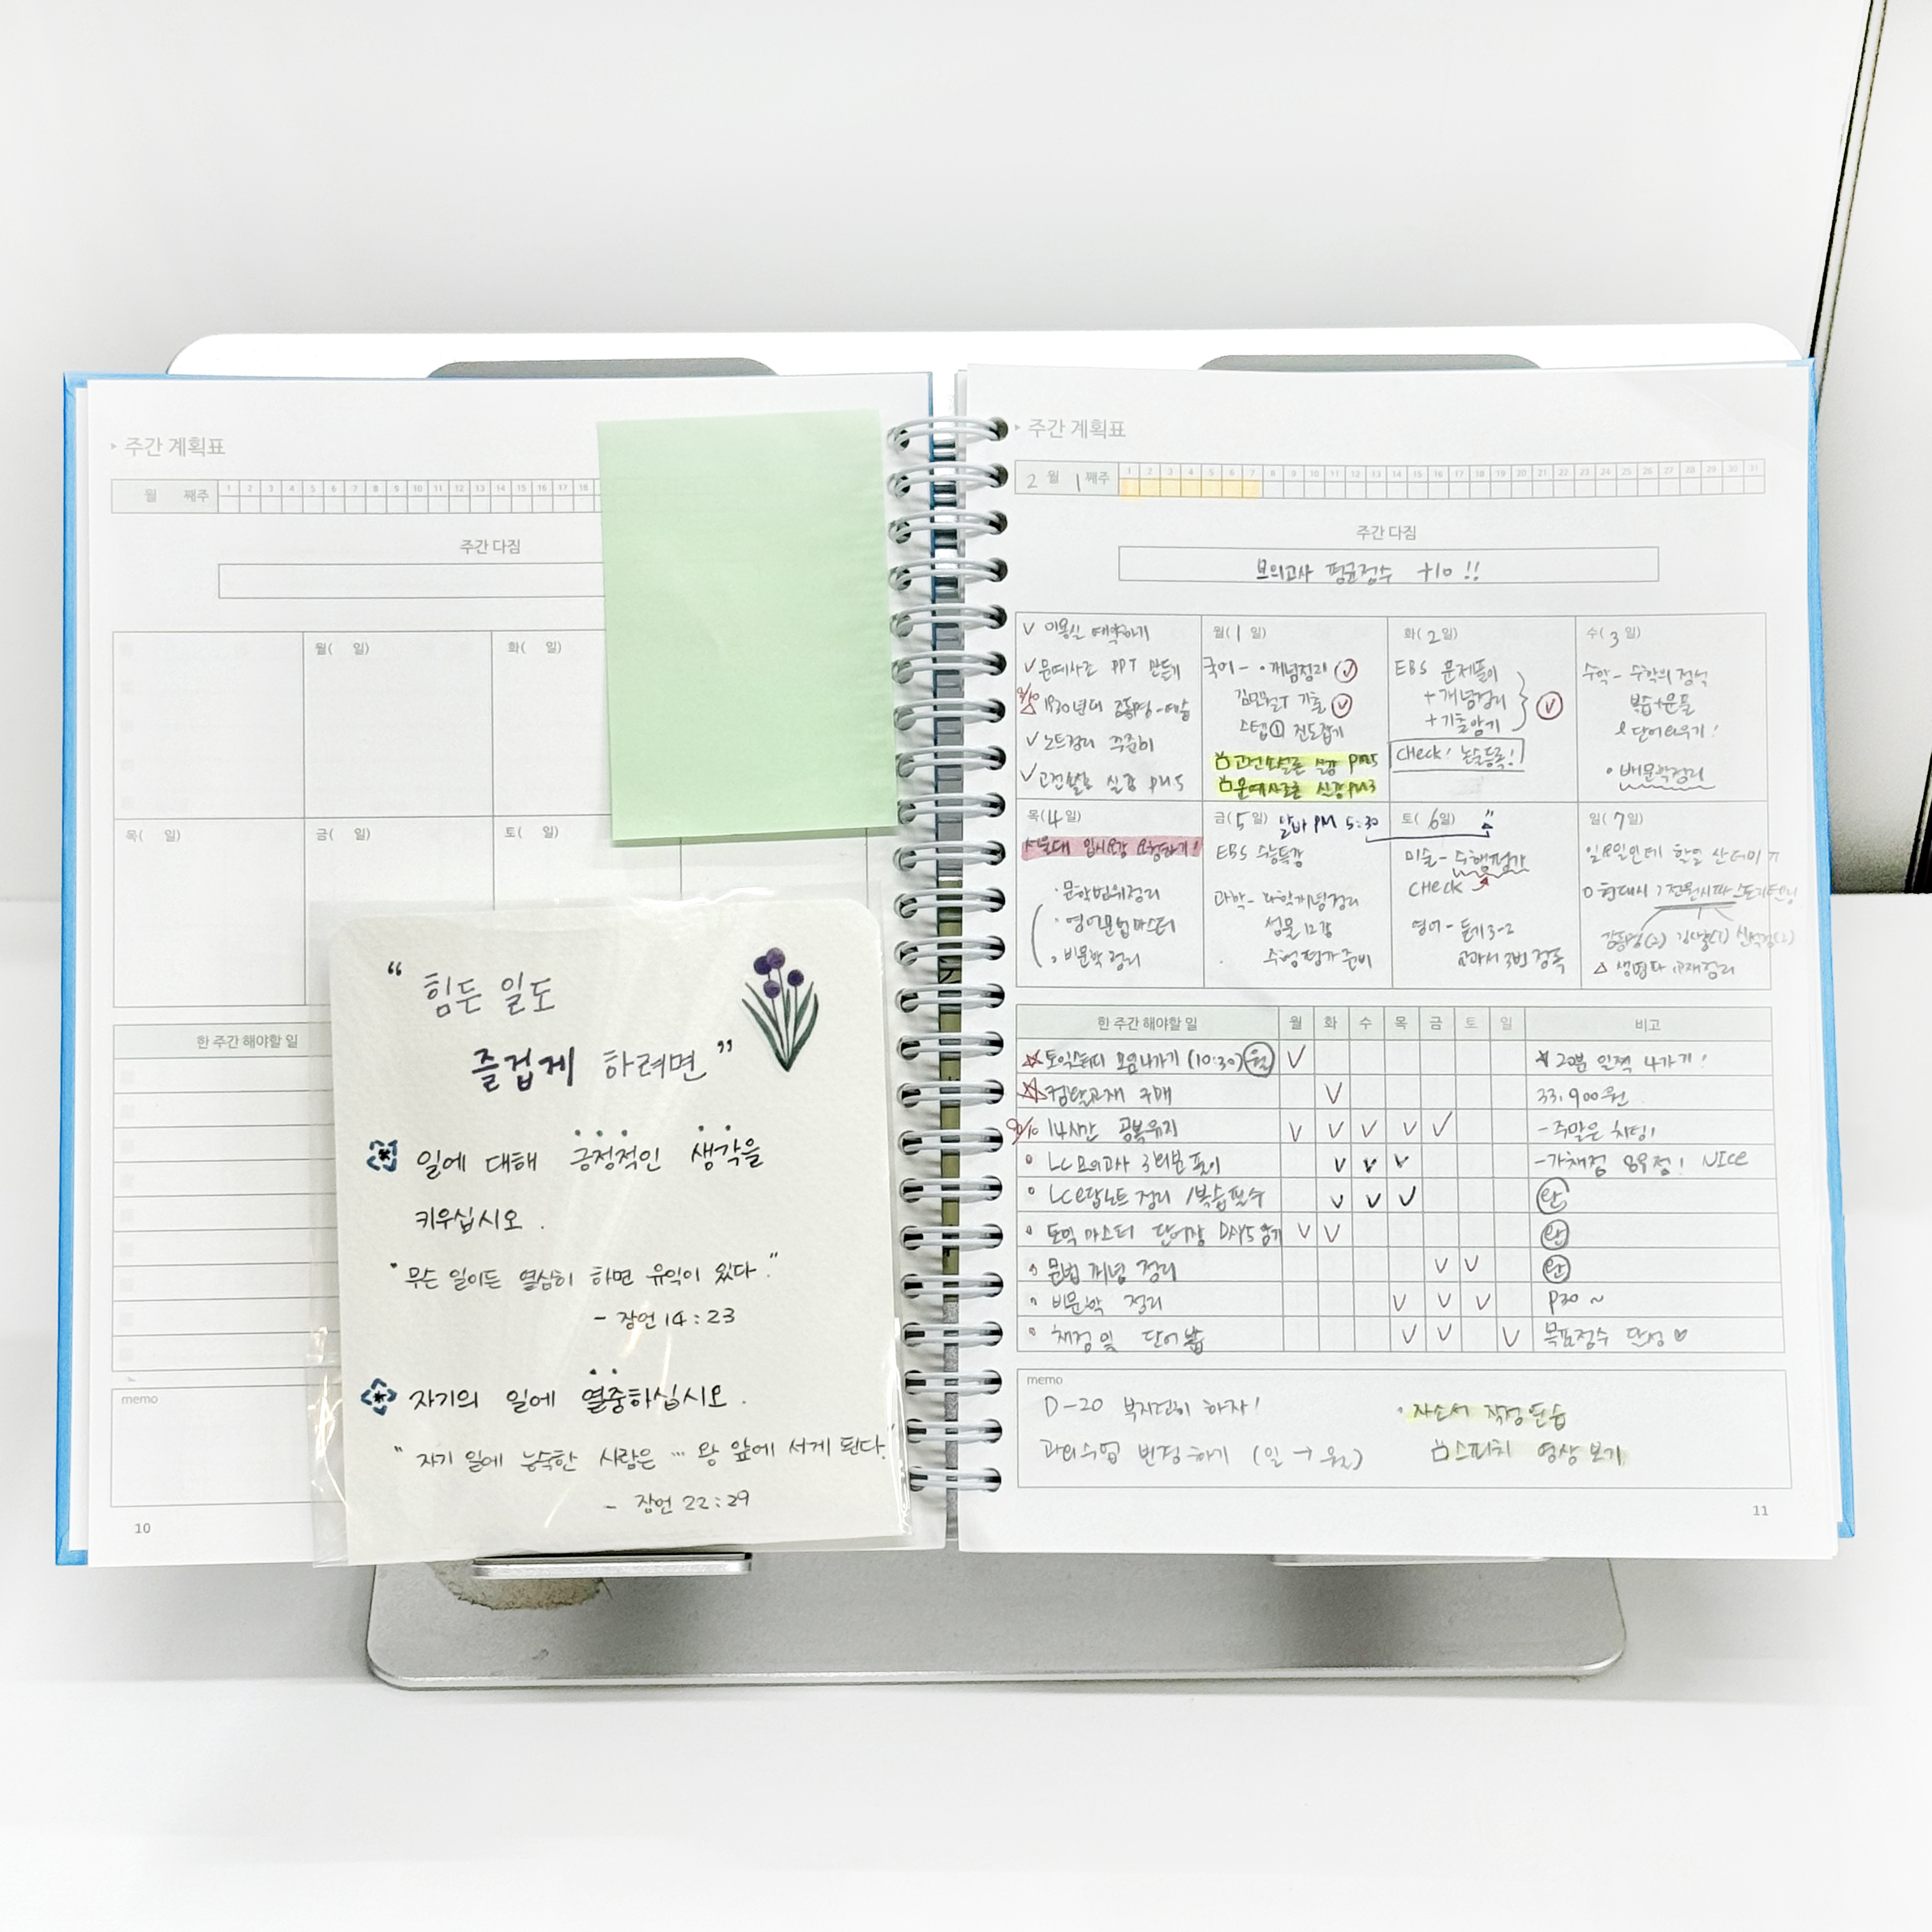 ▸ 주간 계획표
월 째주 1 2 3 4 5 6 7 8 9 10 11 12 13 14 15 16 17 18
주간 다짐
월( 일) 화( 일)
목( 일) 금( 일) 토( 일)
한 주간 해야할 일
memo
10
" 힘든 일도
즐겁게 하려면 "
일에 대해 긍정적인 생각을
키우십시오.
"무슨 일이든 열심히 하면 유익이 있다."
- 잠언 14:23
자기의 일에 열중하십시오.
"자기 일에 능숙한 사람은 … 왕 앞에 서게 된다."
- 잠언 22:29
▸ 주간 계획표
2 월 1 째주 1 2 3 4 5 6 7 8 9 10 11 12 13 14 15 16 17 18 19 20 21 22 23 24 25 26 27 28 29 30 31
주간 다짐
모의고사 평균점수 +10 !!
V 미용실 예약하기
V 문예사조 PPT 만들기
1930년대 김동명-
V 노트정리 꾸준히
V 고전소설론 실강 PM 5
월(1 일)
국어- ·개념정리 V
기출 V
스텝① 진도잡기
고전소설론 실강 PM5
문예사조론 실강 PM3
화(2 일)
EBS 문제풀이
+개념정리
+기출암기
V
CHeck! 논술등록!
수(3 일)
수학- 수학의 정석
복습+문풀
단어외우기!
· 비문학정리
목(4 일)
서울대 입시요강 요청하기!
· 문학범위정리
· 영어문법마스터
· 비문학 정리
금(5 일) 알바 PM 5:30
EBS 수능특강
과학- 화학개념정리
12강
수행평가 준비
토( 6일)
미술- 수행평가
CHeck
영어- 듣기3-2
교과서 3번 정독
일( 7일)
일요일인데 할일 산더미 ㅠ
현대시 : 전원시파
김동명(2) 신석정(2)
△ 교재정리
한 주간 해야할 일 월 화 수 목 금 토 일 비고
☆토익스터디 모임나가기 (10:30) 월 V ★20분 일찍 나가기!
☆컴활교재 구매 V 33,900원
14시간 공복유지 V V V V V -주말은 치팅!
· LC모의고사 3회분 풀이 V V V -가채점 89점! NICE
· LC오답노트 정리 /복습필수 V V V 완
· 토익 마스터 단어장 DAY5 암기 V V 완
· 문법 개념 정리 V V 완
· 비문학 정리 V V V P30 ~
· 채점 및 단어 V V V 목표점수 달성♡
memo
D-20 부지런히 하자!
과외수업 변경하기 (일 → 월)
· 자소서 작성연습
스피치 영상보기
11